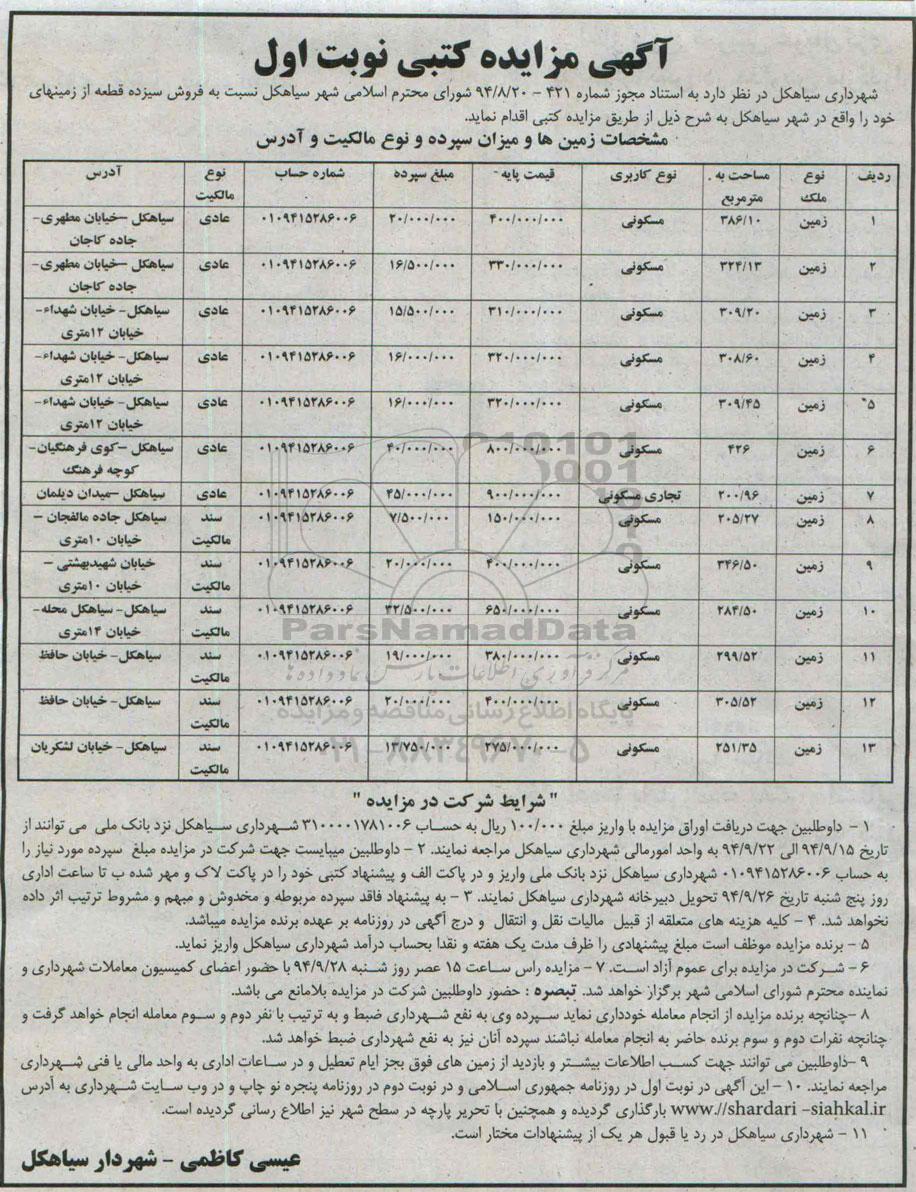 آگهی مزایده کتبی نوبت اول
شهرداری سیاهکل در نظر دارد به استناد مجوز شماره ۴۲۱ - ۹۴/۸/۲۰ شورای محترم اسلامی شهر سیاهکل نسبت به فروش سیزده قطعه از زمینهای
خود را واقع در شهر سیاهکل به شرح ذیل از طریق مزایده کتبی اقدام نماید.
مشخصات زمین ها و میزان سپرده و نوع مالکیت و آدرس
ردیف نوع ملک مساحت به مترمربع نوع کاربری قیمت پایه مبلغ سپرده شماره حساب نوع مالکیت آدرس
۱ زمین ۳۸۶/۱۰ مسکونی ۴۰۰/۰۰۰/۰۰۰ ۲۰/۰۰۰/۰۰۰ ۰۱۰۹۴۱۵۲۸۶۰۰۶ عادی سیاهکل –خیابان مطهری-
جاده کاجان
۲ زمین ۳۲۴/۱۳ مسکونی ۳۳۰/۰۰۰/۰۰۰ ۱۶/۵۰۰/۰۰۰ ۰۱۰۹۴۱۵۲۸۶۰۰۶ عادی سیاهکل –خیابان مطهری-
جاده کاجان
۳ زمین ۳۰۹/۲۰ مسکونی ۳۱۰/۰۰۰/۰۰۰ ۱۵/۵۰۰/۰۰۰ ۰۱۰۹۴۱۵۲۸۶۰۰۶ عادی سیاهکل- خیابان شهداء-
خیابان ۱۲متری
۴ زمین ۳۰۸/۶۰ مسکونی ۳۲۰/۰۰۰/۰۰۰ ۱۶/۰۰۰/۰۰۰ ۰۱۰۹۴۱۵۲۸۶۰۰۶ عادی سیاهکل- خیابان شهداء-
خیابان ۱۲متری
۵ زمین ۳۰۹/۴۵ مسکونی ۳۲۰/۰۰۰/۰۰۰ ۱۶/۰۰۰/۰۰۰ ۰۱۰۹۴۱۵۲۸۶۰۰۶ عادی سیاهکل- خیابان شهداء-
خیابان ۱۲متری
۶ زمین ۴۲۶ مسکونی ۸۰۰/۰۰۰/۰۰۰ ۴۰/۰۰۰/۰۰۰ ۰۱۰۹۴۱۵۲۸۶۰۰۶ عادی سیاهکل –کوی فرهنگیان-
کوچه فرهنگ
۷ زمین ۲۰۰/۹۶ تجاری مسکونی ۹۰۰/۰۰۰/۰۰۰ ۴۵/۰۰۰/۰۰۰ ۰۱۰۹۴۱۵۲۸۶۰۰۶ عادی سیاهکل –میدان دیلمان
۸ زمین ۲۰۵/۲۷ مسکونی ۱۵۰/۰۰۰/۰۰۰ ۷/۵۰۰/۰۰۰ ۰۱۰۹۴۱۵۲۸۶۰۰۶ سند مالکیت سیاهکل جاده مالفجان –
خیابان ۱۰متری
۹ زمین ۳۴۶/۵۰ مسکونی ۴۰۰/۰۰۰/۰۰۰ ۲۰/۰۰۰/۰۰۰ ۰۱۰۹۴۱۵۲۸۶۰۰۶ سند مالکیت خیابان شهیدبهشتی –
خیابان ۱۰متری
۱۰ زمین ۲۸۴/۵۰ مسکونی ۶۵۰/۰۰۰/۰۰۰ ۳۲/۵۰۰/۰۰۰ ۰۱۰۹۴۱۵۲۸۶۰۰۶ سند مالکیت سیاهکل- سیاهکل محله-
خیابان ۱۴متری
۱۱ زمین ۲۹۹/۵۲ مسکونی ۳۸۰/۰۰۰/۰۰۰ ۱۹/۰۰۰/۰۰۰ ۰۱۰۹۴۱۵۲۸۶۰۰۶ سند مالکیت سیاهکل- خیابان حافظ
۱۲ زمین ۳۰۵/۵۲ مسکونی ۴۰۰/۰۰۰/۰۰۰ ۲۰/۰۰۰/۰۰۰ ۰۱۰۹۴۱۵۲۸۶۰۰۶ سند مالکیت سیاهکل- خیابان حافظ
۱۳ زمین ۲۵۱/۳۵ مسکونی ۲۷۵/۰۰۰/۰۰۰ ۱۳/۷۵۰/۰۰۰ ۰۱۰۹۴۱۵۲۸۶۰۰۶ سند مالکیت سیاهکل- خیابان لشکریان
ParsNamadData
مرکز فرآوری اطلاعات پارس نماد داده ها
پایگاه اطلاع رسانی مناقصه و مزایده
۰۲۱-۸۸۳۴۹۶۷۰-۵
" شرایط شرکت در مزایده "
۱ - داوطلبین جهت دریافت اوراق مزایده با واریز مبلغ ۱۰۰/۰۰۰ ریال به حساب ۳۱۰۰۰۰۱۷۸۱۰۰۶ شهرداری سیاهکل نزد بانک ملی می توانند از
تاریخ ۹۴/۹/۱۵ الی ۹۴/۹/۲۲ به واحد امورمالی شهرداری سیاهکل مراجعه نمایند. ۲ - داوطلبین میبایست جهت شرکت در مزایده مبلغ سپرده مورد نیاز را
به حساب ۰۱۰۹۴۱۵۲۸۶۰۰۶ شهرداری سیاهکل نزد بانک ملی واریز و در پاکت الف و پیشنهاد کتبی خود را در پاکت لاک و مهر شده ب تا ساعت اداری
روز پنج شنبه تاریخ ۹۴/۹/۲۶ تحویل دبیرخانه شهرداری سیاهکل نمایند. ۳ - به پیشنهاد فاقد سپرده مربوطه و مخدوش و مبهم و مشروط ترتیب اثر داده
نخواهد شد. ۴ - کلیه هزینه های متعلقه از قبیل مالیات نقل و انتقال و درج آگهی در روزنامه بر عهده برنده مزایده میباشد.
۵ - برنده مزایده موظف است مبلغ پیشنهادی را ظرف مدت یک هفته و نقدا بحساب درآمد شهرداری سیاهکل واریز نماید.
۶ - شرکت در مزایده برای عموم آزاد است. ۷ - مزایده راس ساعت ۱۵ عصر روز شنبه ۹۴/۹/۲۸ با حضور اعضای کمیسیون معاملات شهرداری و
نماینده محترم شورای اسلامی شهر برگزار خواهد شد. تبصره : حضور داوطلبین شرکت در مزایده بلامانع می باشد.
۸ -چنانچه برنده مزایده از انجام معامله خودداری نماید سپرده وی به نفع شهرداری ضبط و به ترتیب با نفر دوم و سوم معامله انجام خواهد گرفت و
چنانچه نفرات دوم و سوم برنده حاضر به انجام معامله نباشند سپرده آنان نیز به نفع شهرداری ضبط خواهد شد.
۹ -داوطلبین می توانند جهت کسب اطلاعات بیشتر و بازدید از زمین های فوق بجز ایام تعطیل و در ساعات اداری به واحد مالی یا فنی شهرداری
مراجعه نمایند. ۱۰ - این آگهی در نوبت اول در روزنامه جمهوری اسلامی و در نوبت دوم در روزنامه پنجره نو چاپ و در وب سایت شهرداری به آدرس
www.//shardari -siahkal.ir بارگذاری گردیده و همچنین با تحریر پارچه در سطح شهر نیز اطلاع رسانی گردیده است.
۱۱ - شهرداری سیاهکل در رد یا قبول هر یک از پیشنهادات مختار است.
عیسی کاظمی - شهردار سیاهکل